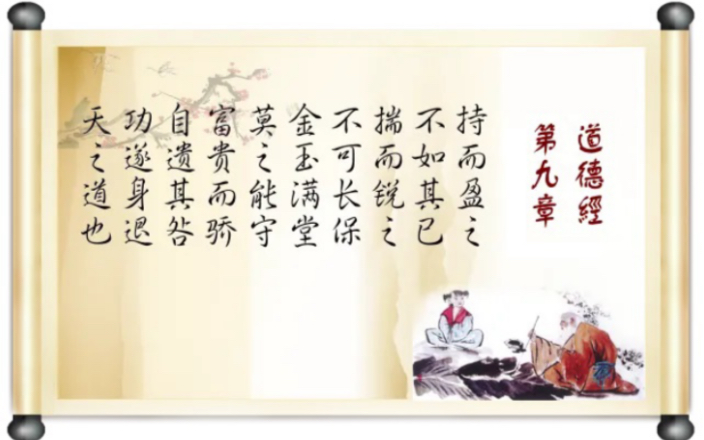 道德經
第九章
持而盈之
不如其已
揣而锐之
不可长保
金玉满堂
莫之能守
富贵而骄
自遗其咎
功遂身退
天之道也